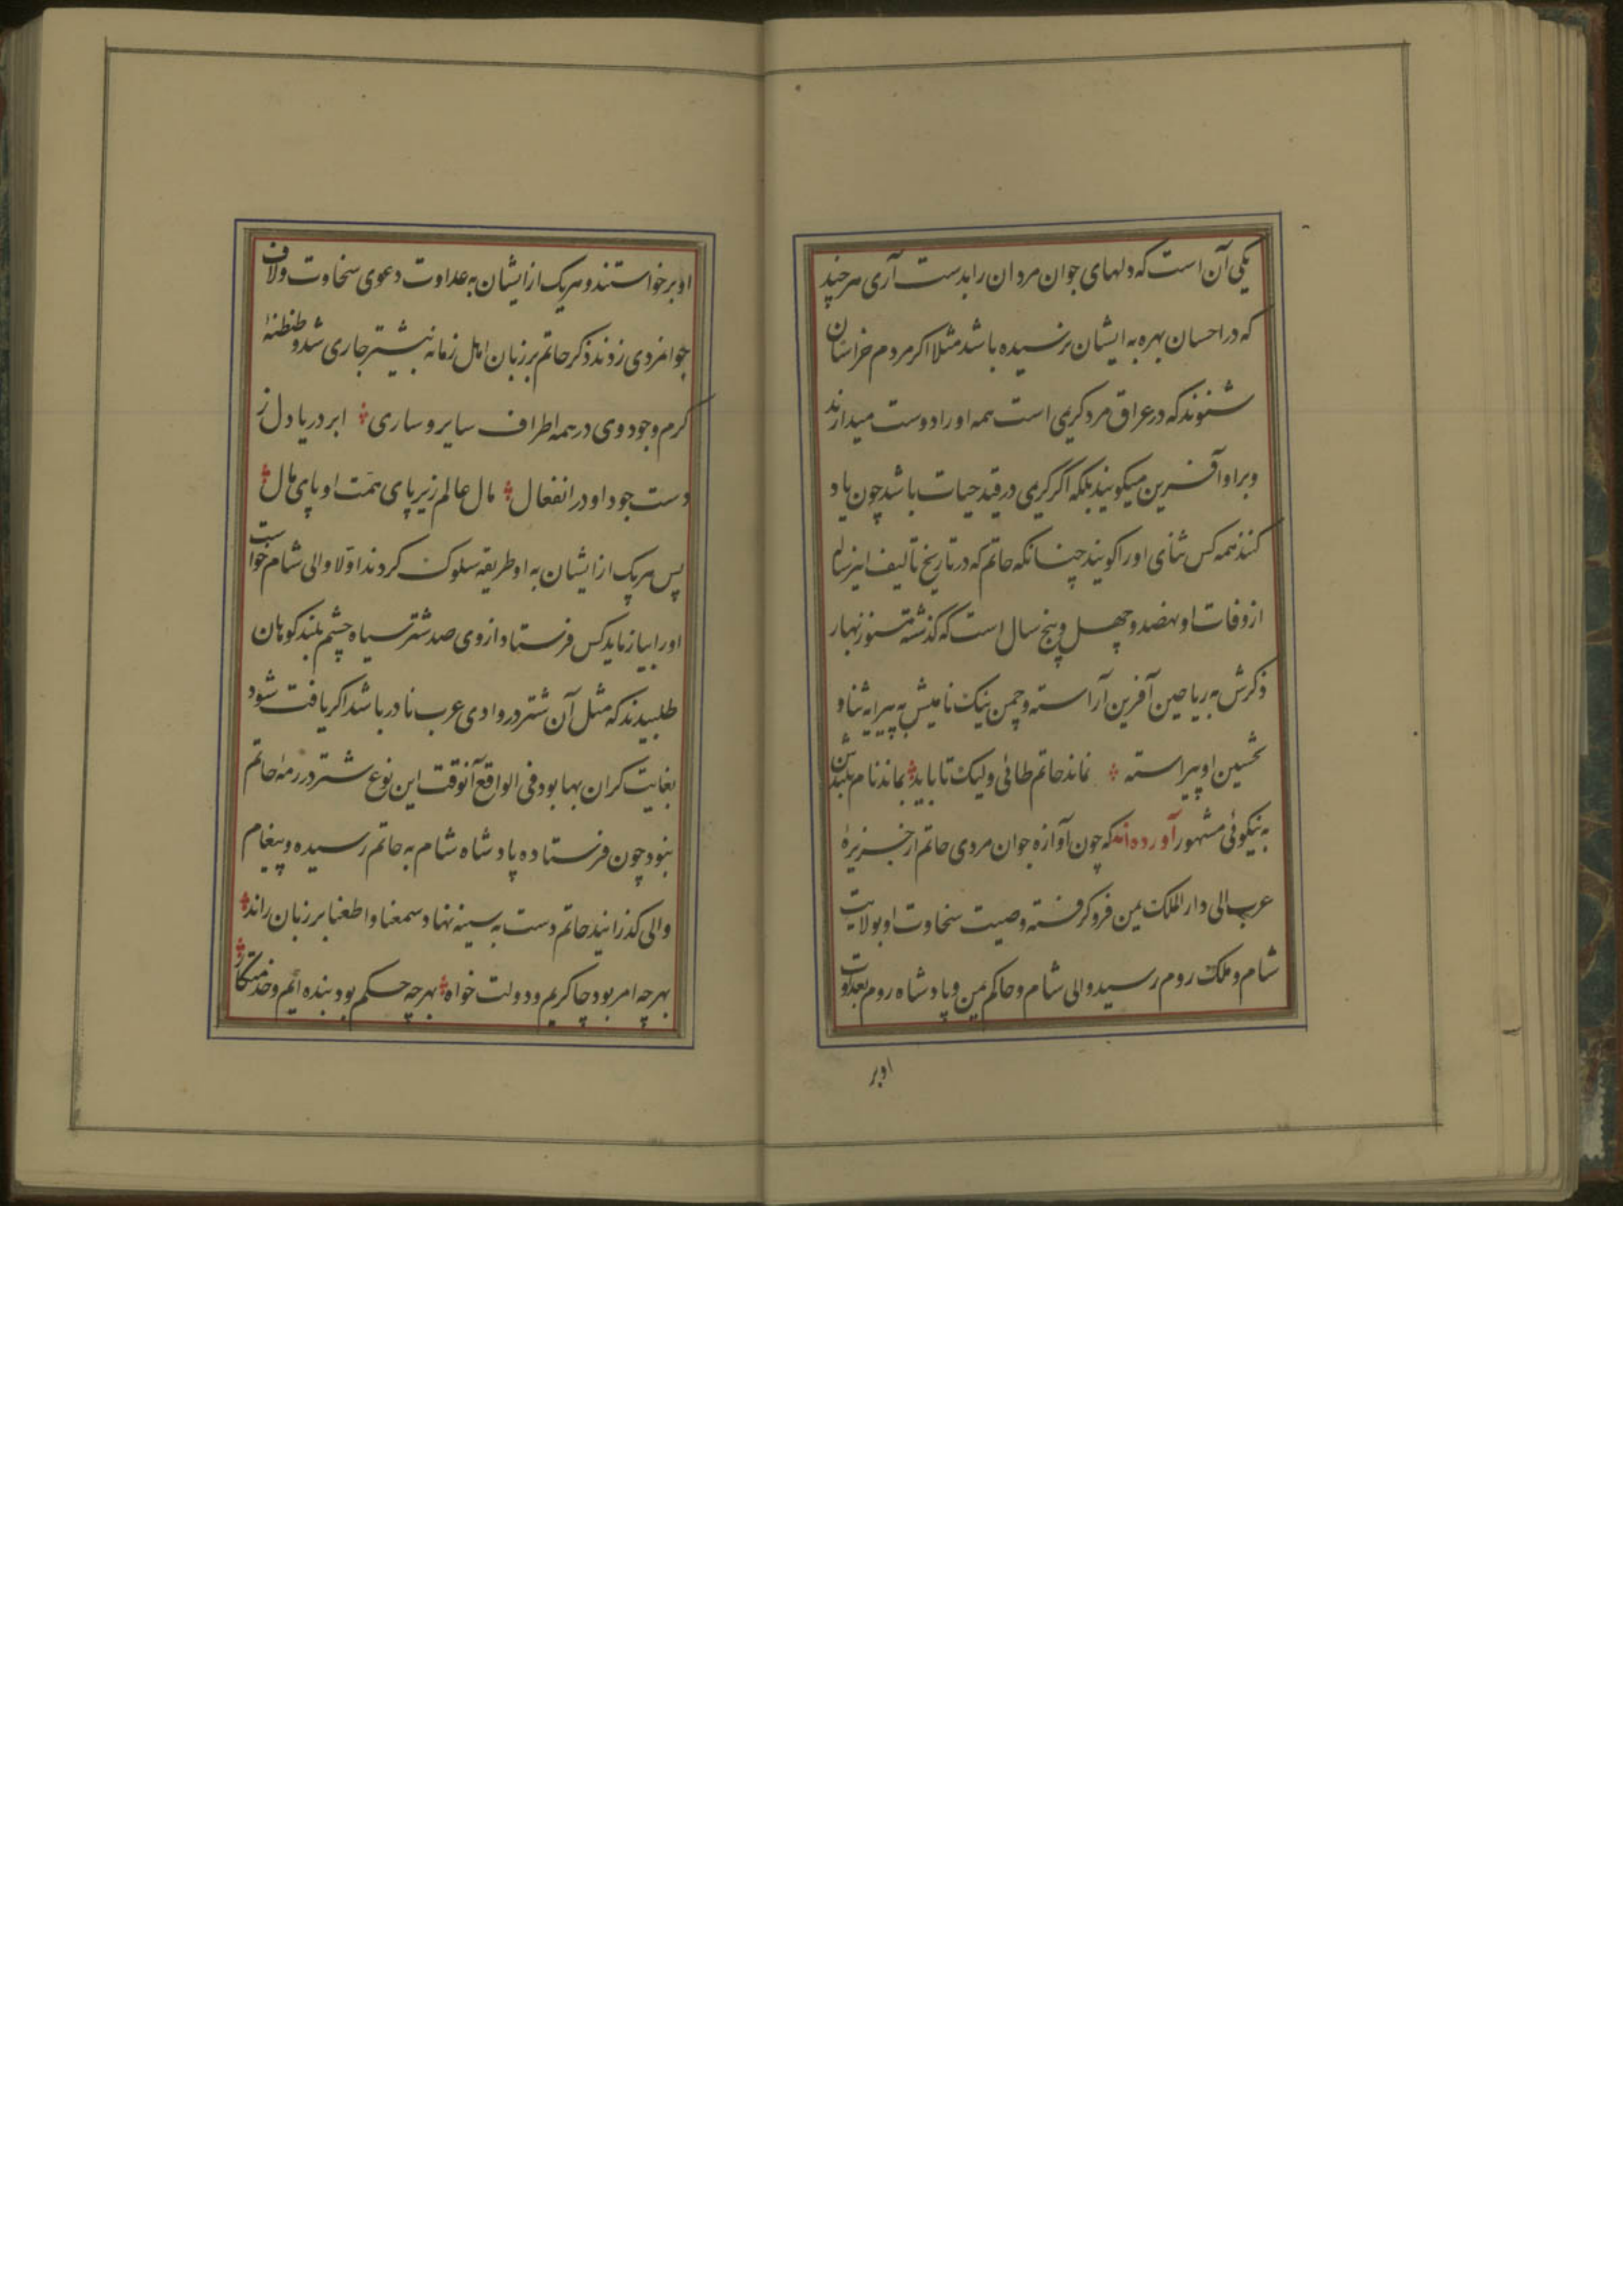 یکی آن است که دلهای جوان مردان را بدست آری هر چند
که در احسان بهره به ایشان نرسیده باشد مثلا اکر مردم خراسان
شنوند که در عراق مرد کریمی است همه او را دوست میدارند
و بر او آفرین میکویند بلکه اکر کریمی در قید حیات باشد چون یاد
کنند همه کس ثنای او را کویند چنانکه حاتم که در تاریخ تالیف این رساله
از وفات او نهصد و چهل و پنج سال است که کذشته هنوز نهار
ذکرش به ریاحین آفرین آراسته و چمن نیک نامیش به پیرایه ثنا و
تحسین او پیراسته نماند حاتم طائی ولیک تا باید بماند نام بلندش
به نیکوئی مشهور آورده‌اند که چون آوازه جوان مردی حاتم از جزیرهٔ
عرب الی دار الملک یمن فرو کرفته و صیت سخاوت او بولایت
شام و ملک روم رسید والی شام و حاکم یمن و پادشاه روم بعداوت
اوبر
او برخواستند و هر یک از ایشان به عداوت دعوی سخاوت و لاف
جوانمردی زدند ذکر حاتم بر زبان اهل زمانه بیشتر جاری شد و طنطنهٔ
کرم وجود وی در همه اطراف سایر و ساری ابر دریا دل ز
دست جود او در انفعال مال عالم زیر پای همت او پای مال
پس هر یک از ایشان به او طریقه سلوک کردند اولا والی شام خواست
او را بیازماید کس فرستاد از وی صد شتر سیاه چشم بلند کوهان
طلبیدند که مثل آن شتر در وادی عرب نادر باشد اکر یافت شود
بغایت کران بها بود فی الواقع آنوقت این نوع شتر در رمهٔ حاتم
نبود چون فرستاده پادشاه شام به حاتم رسیده و پیغام
والی کذرانید حاتم دست به سینه نهاد سمعنا و اطعنا بر زبان راند
بهرچه امر بود چاکریم و دولت خواه بهرچه حکم بود بنده ائیم و خدمتکار